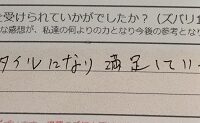 を受けられていかがでしたか？（ズバリ
な感想が、私達の何よりの力となり今後の参考とな
タイルになり 満足してい